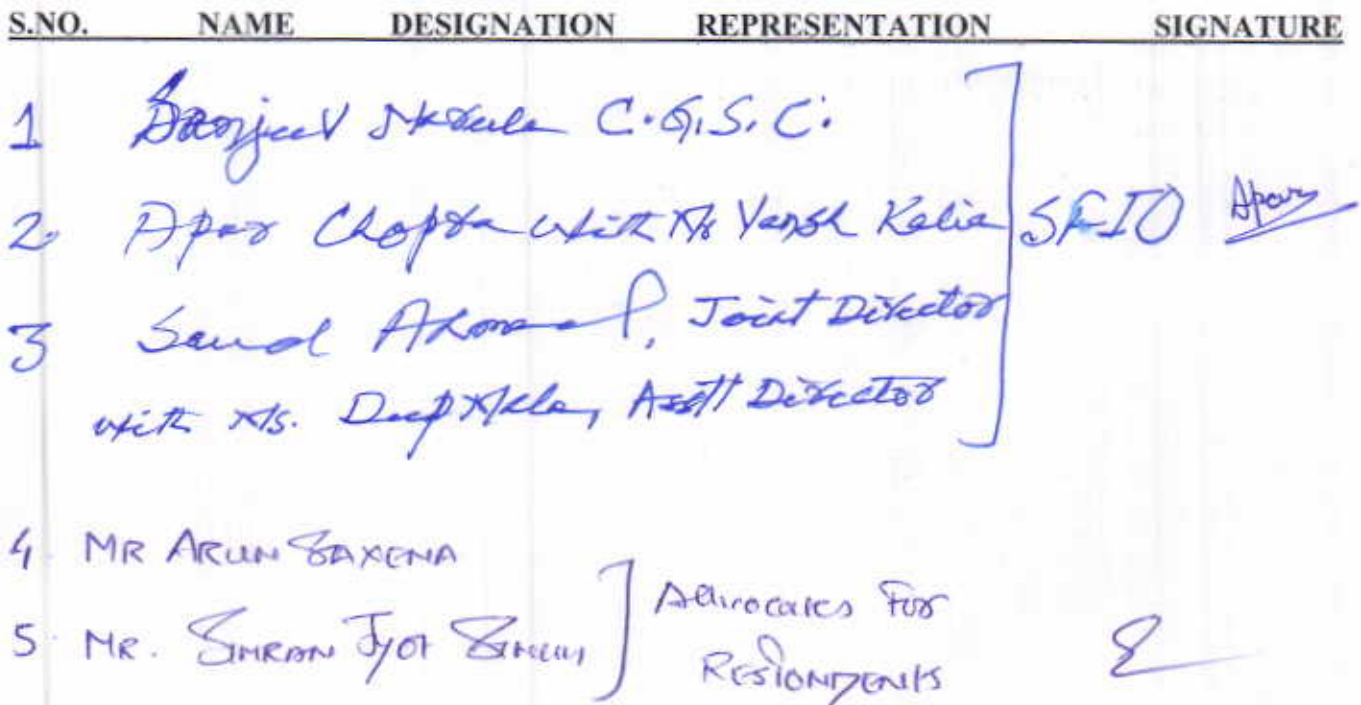 S.NO. NAME DESIGNATION REPRESENTATION SIGNATURE
1 Sanjeev Narula C.G.S.C.
2. Apar Chopra with Ms Vansh Kalia SFIO Apar
3 Saud Ahmad, Joint Director
with Ms. Deep Asstt Director
4. MR ARUN SAXENA
5. MR. SIMRAN JYOT SINGH Advocates For
RESPONDENTS